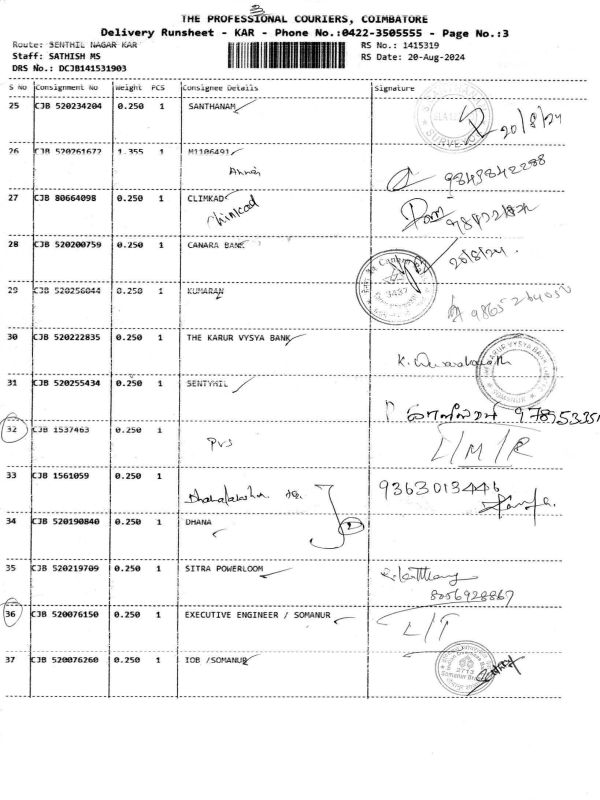 THE PROFESSIONAL COURIERS, COIMBATORE
Delivery Runsheet - KAR - Phone No.:0422-3505555 - Page No.:3
Route: SENTHIL NAGAR KAR
Staff: SATHISH MS
DRS No.: DCJB141531903
RS No.: 1415319
RS Date: 20-Aug-2024
S No Consignment No Weight PCS Consignee Details Signature
25 CJB 520234204 0.250 1 SANTHANAM 20/8/24
26 CJB 520261672 1.355 1 M1106491
9843842288
27 CJB 80664098 0.250 1 CLIMKAD
28 CJB 520200759 0.250 1 CANARA BANK 20/8/24.
29 CJB 520256044 0.250 1 KUMARAN
30 CJB 520222835 0.250 1 THE KARUR VYSYA BANK
31 CJB 520255434 0.250 1 SENTYHIL
32 CJB 1537463 0.250 1 PVS L/M/R
33 CJB 1561059 0.250 1 9363013446
34 CJB 520190840 0.250 1 DHANA 2
35 CJB 520219709 0.250 1 SITRA POWERLOOM
8056928867
36 CJB 520076150 0.250 1 EXECUTIVE ENGINEER / SOMANUR L/T
37 CJB 520076260 0.250 1 IOB /SOMANUR